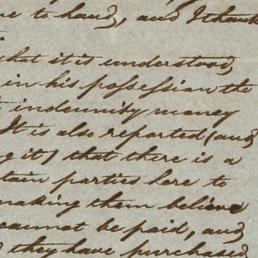 me to hand, and I thank
what it is understood,
in his possession the
indemnity money
It is also reported (and
g it) that there is a
tain parties here to
making them believe
cannot be paid, and
they have purchased